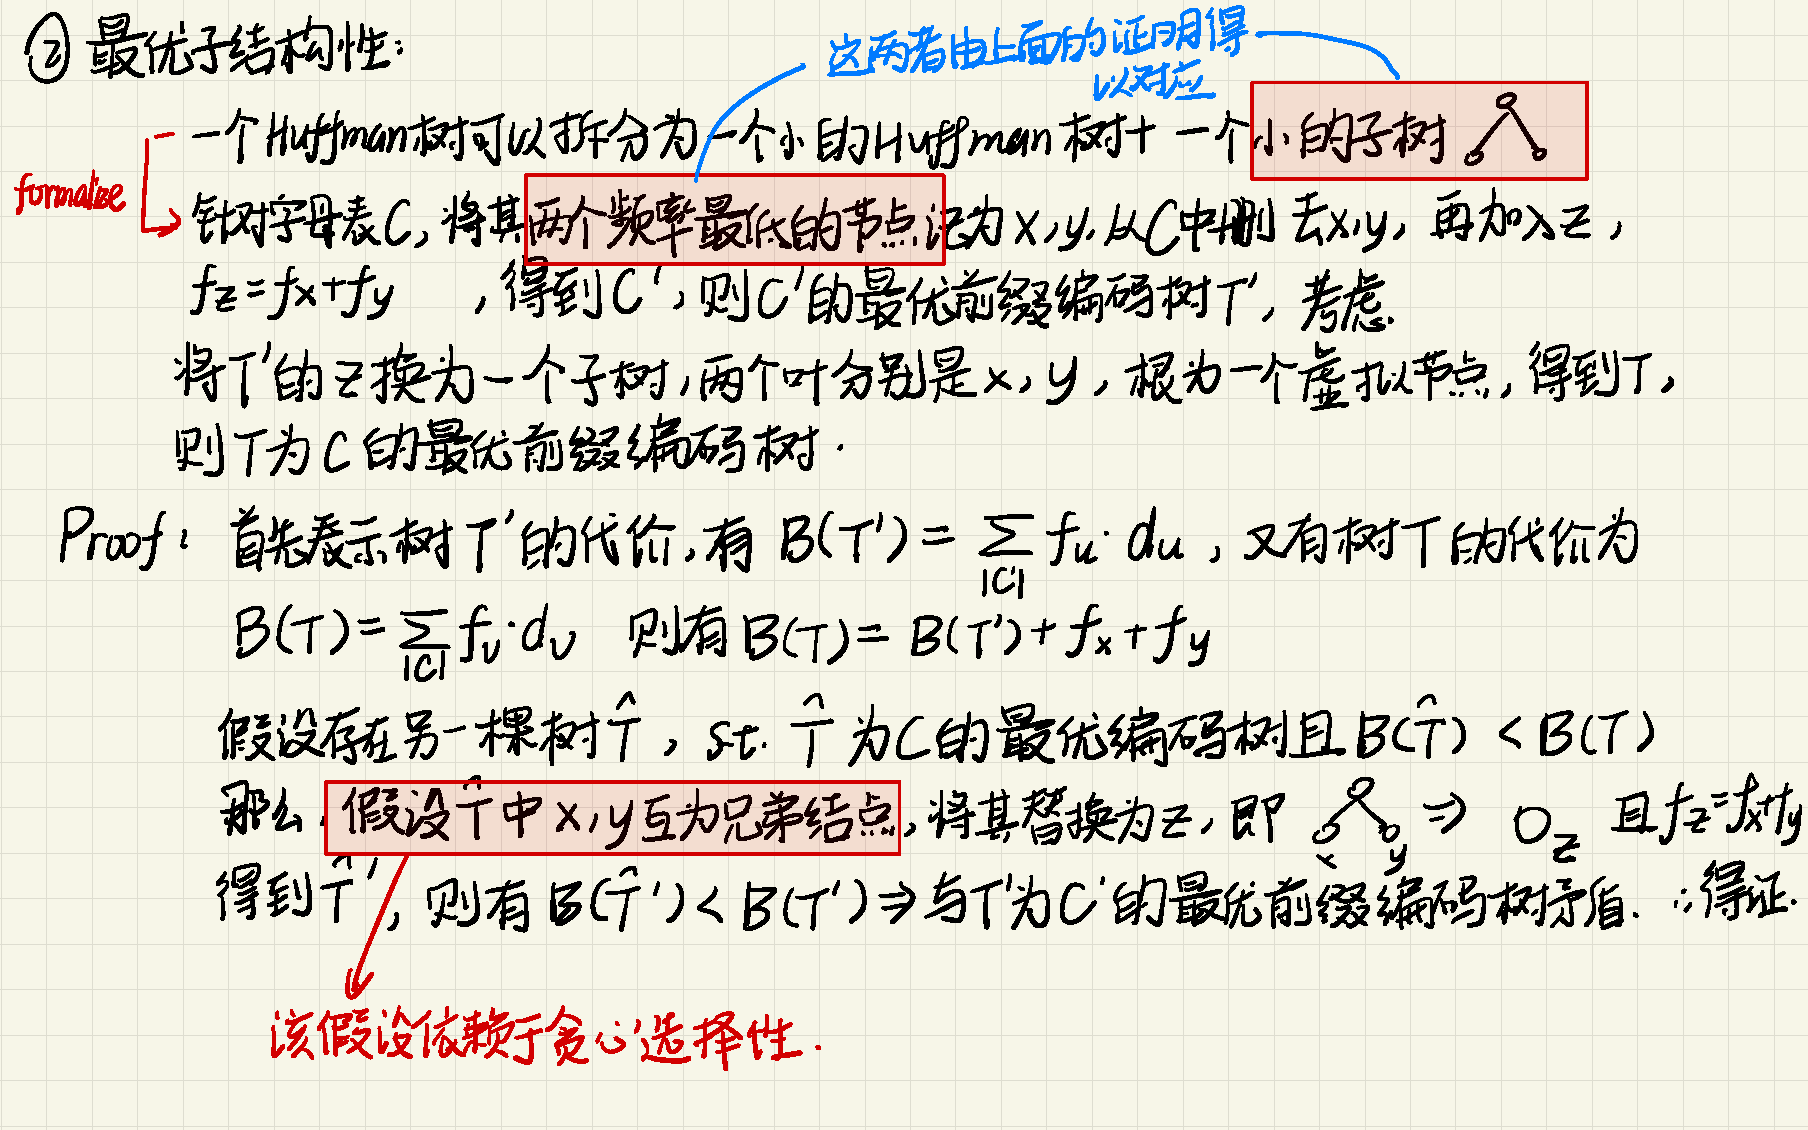 ② 最优子结构性:
这两者由上面的证明得
以对应
一个Huffman树可以拆分为一个小的Huffman树+一个小的子树
formalize
针对字母表C,将其两个频率最低的节点记为x,y,从C中删去x,y,再加入z,
fz=fx+fy ,得到C',则C'的最优前缀编码树T',考虑.
将T'的z换为一个子树,两个叶分别是x,y,根为一个虚拟节点,得到T,
则T为C的最优前缀编码树.
Proof: 首先表示树T'的代价,有 B(T')= ∑|C'| fu·du ,又有树T的代价为
B(T)=∑|C| fv·dv 则有B(T)= B(T')+fx+fy
假设存在另一棵树T̂, s.t. T̂为C的最优编码树且B(T̂) < B(T)
那么,假设T̂中x,y互为兄弟结点,将其替换为z,即 x y ⇒ z 且fz=fx+fy
得到T̂',则有B(T̂')<B(T')⇒与T'为C'的最优前缀编码树矛盾. ∴得证.
该假设依赖于贪心选择性.